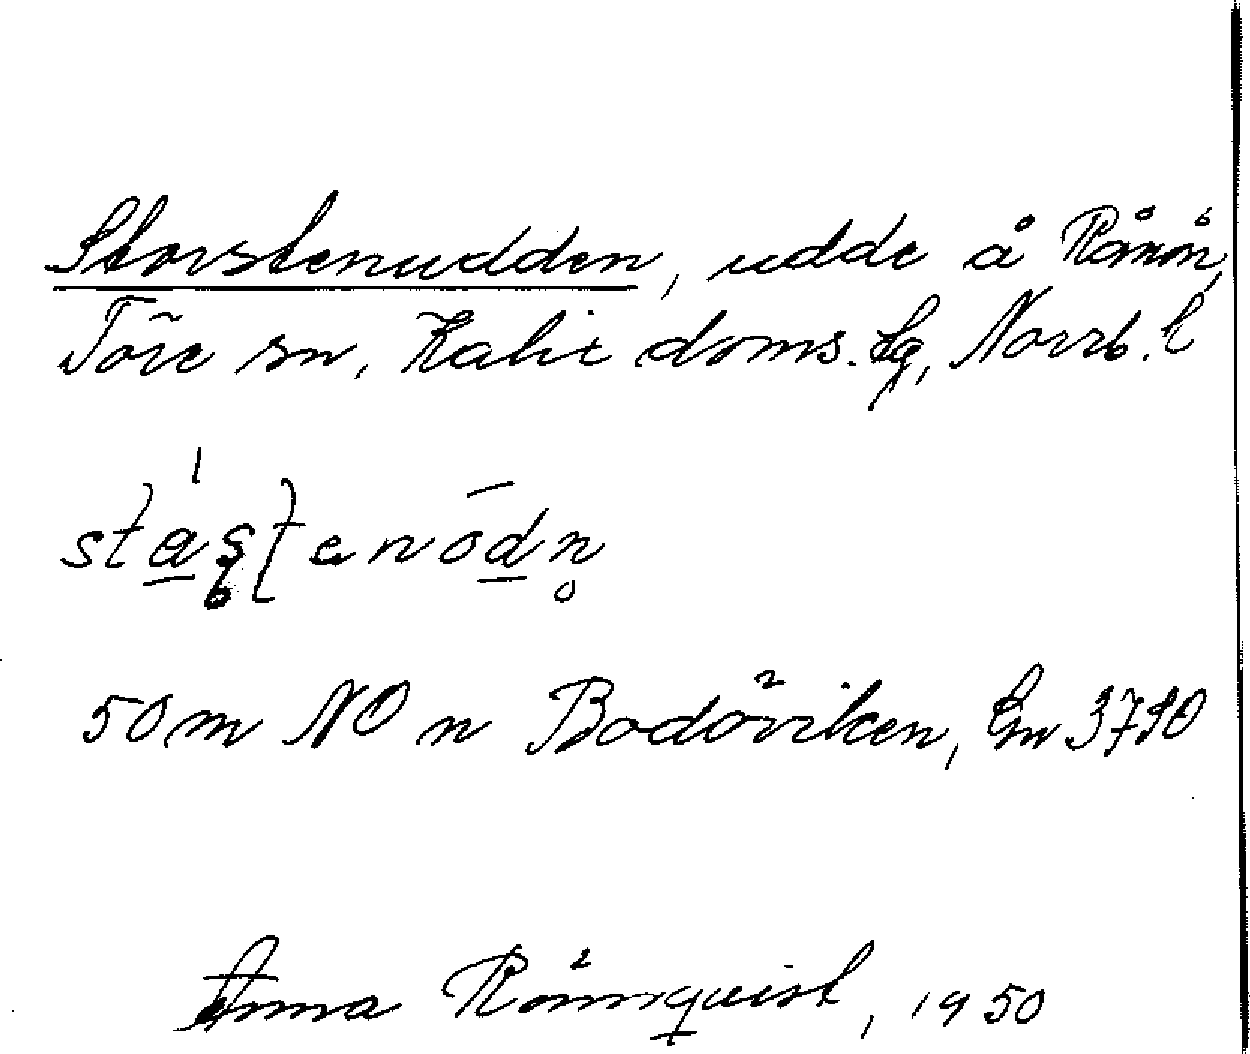 Storstenudden, udde å Rånön,
Töre sn, Kalix doms. lg, Norrb. l
50 m NO n Bodöviken, Gn 3790
Anna Rönnquist, 1950